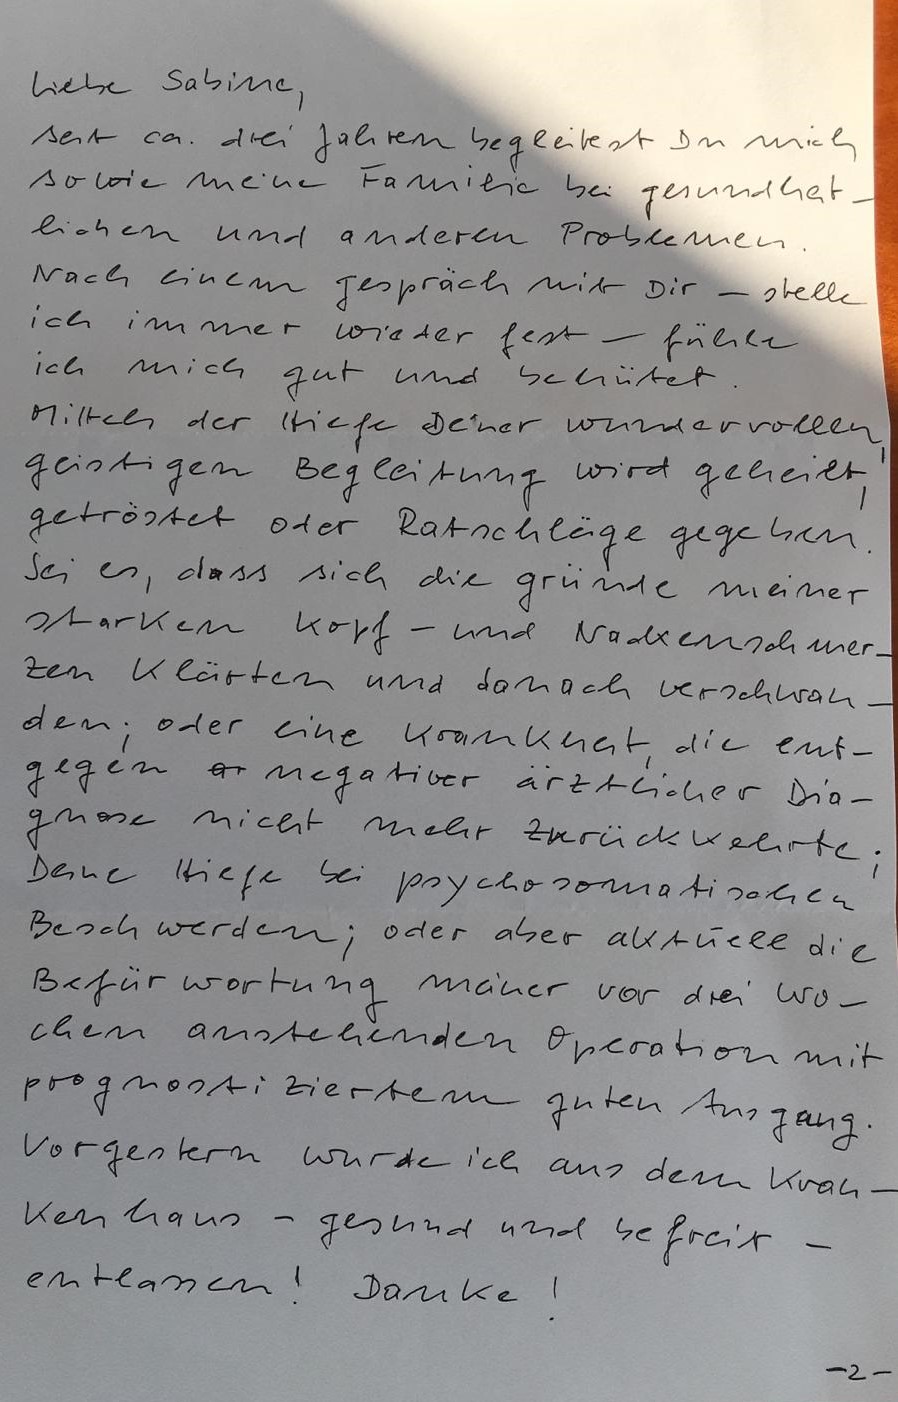 Liebe Sabine,
seit ca. drei Jahren begleitest Du mich
sowie meine Familie bei gesundheit-
lichen und anderen Problemen.
Nach einem Gespräch mit Dir – stelle
ich immer wieder fest – fühle
ich mich gut und behütet.
Mittels der Hilfe Deiner wundervollen,
geistigen Begleitung wird geheilt,
getröstet oder Ratschläge gegeben.
Sei es, dass sich die Gründe meiner
starken Kopf- und Nackenschmer-
zen klärten und danach verschwan-
den; oder eine Krankheit, die ent-
gegen negativer ärztlicher Dia-
gnose nicht mehr zurückkehrte;
Deine Hilfe bei psychosomatischen
Beschwerden; oder aber aktuell die
Befürwortung meiner vor drei Wo-
chen anstehenden Operation mit
prognostiziertem guten Ausgang.
Vorgestern wurde ich aus dem Kran-
kenhaus – gesund und befreit –
entlassen! Danke!
-2-